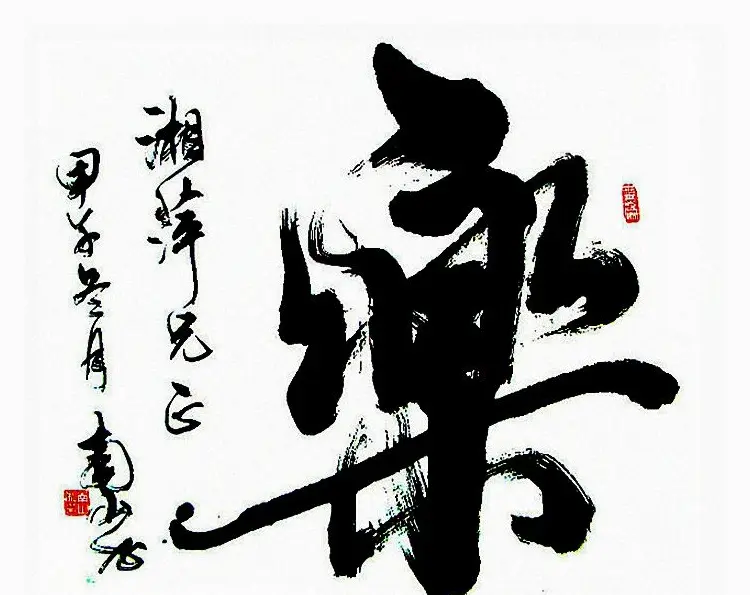 樂
湘萍兄正
甲午冬月
南山书